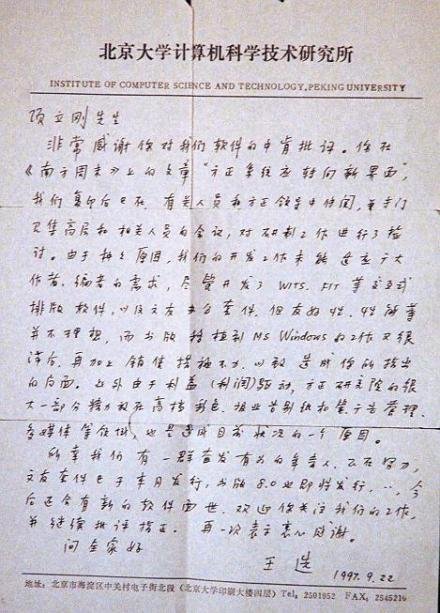 北京大学计算机科学技术研究所
INSTITUTE OF COMPUTER SCIENCE AND TECHNOLOGY, PEKING UNIVERSITY
项立刚先生
非常感谢你对我们软件的中肯批评。你在
《南方周末》上的文章"方正系统应转向新界面",
我们复印后已在有关人员和方正领导中传阅,并专门
召集高层和相关人员的会议,对研制工作进行了检
讨。由于种种原因,我们的开发工作未能适应广大
作者、编者的需求,尽管开发了WITS、FIT等交互式
排版软件,以及文友办公套件,但友好性、性能等
并不理想,而书版移植到MS Windows的工作又很
滞后,再加上销售措施不力,以致造成你所指出
的局面。此外由于利益(利润)驱动,方正研究院的很
大一部分精力放在高档彩色、报业告别纸和笔、广告管理、
多媒体等领域,也是造成目前状况的一个原因。
所幸我们有一群奋发有为的年青人,正在努力,
文友套件已于本月发行,书版8.0也即将发行,…,今
后还会有新的软件面世,欢迎你关注我们的工作,
并继续批评指正。再一次表示衷心感谢。
问全家好
王选
1997.9.22
地址:北京市海淀区中关村电子街北段(北京大学印刷大楼四层)Tel:2501952 FAX:2545219